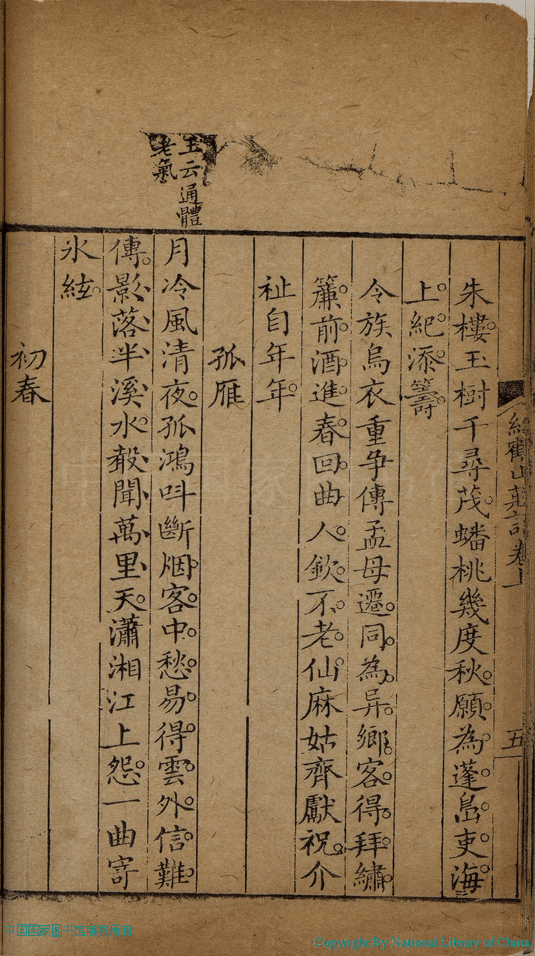 朱樓玉樹千尋茂蟠桃幾度秋願為蓬島吏海
上紀添籌
令族烏衣重爭傳孟母遷同為异鄉客得拜繡
簾前酒進春回曲人欽不老仙麻姑齊獻祝介
祉自年年
孤雁
月冷風清夜孤鴻呌斷烟客中愁易得雲外信難
傳影落半溪水聲聞萬里天瀟湘江上怨一曲寄
氷絃
初春
玉云通體
老氣
山莊
卷上
五
中国国家图书馆版权所有
Copyright By National Library of China